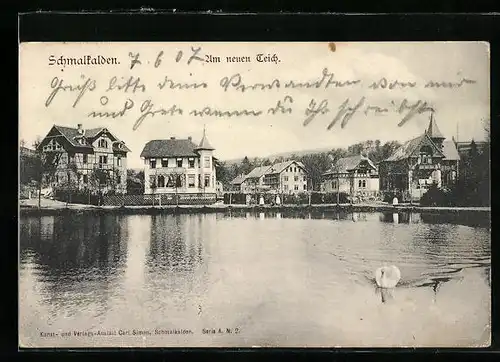 Schmalkalden. 7. 6. 07 Am neuen Teich.
Grüß bitte deine Verwandten von mir
und Grete wenn du ihr schreibst
Kunst- und Verlags-Anstalt Carl Simon, Schmalkalden. Serie A. N. 2.